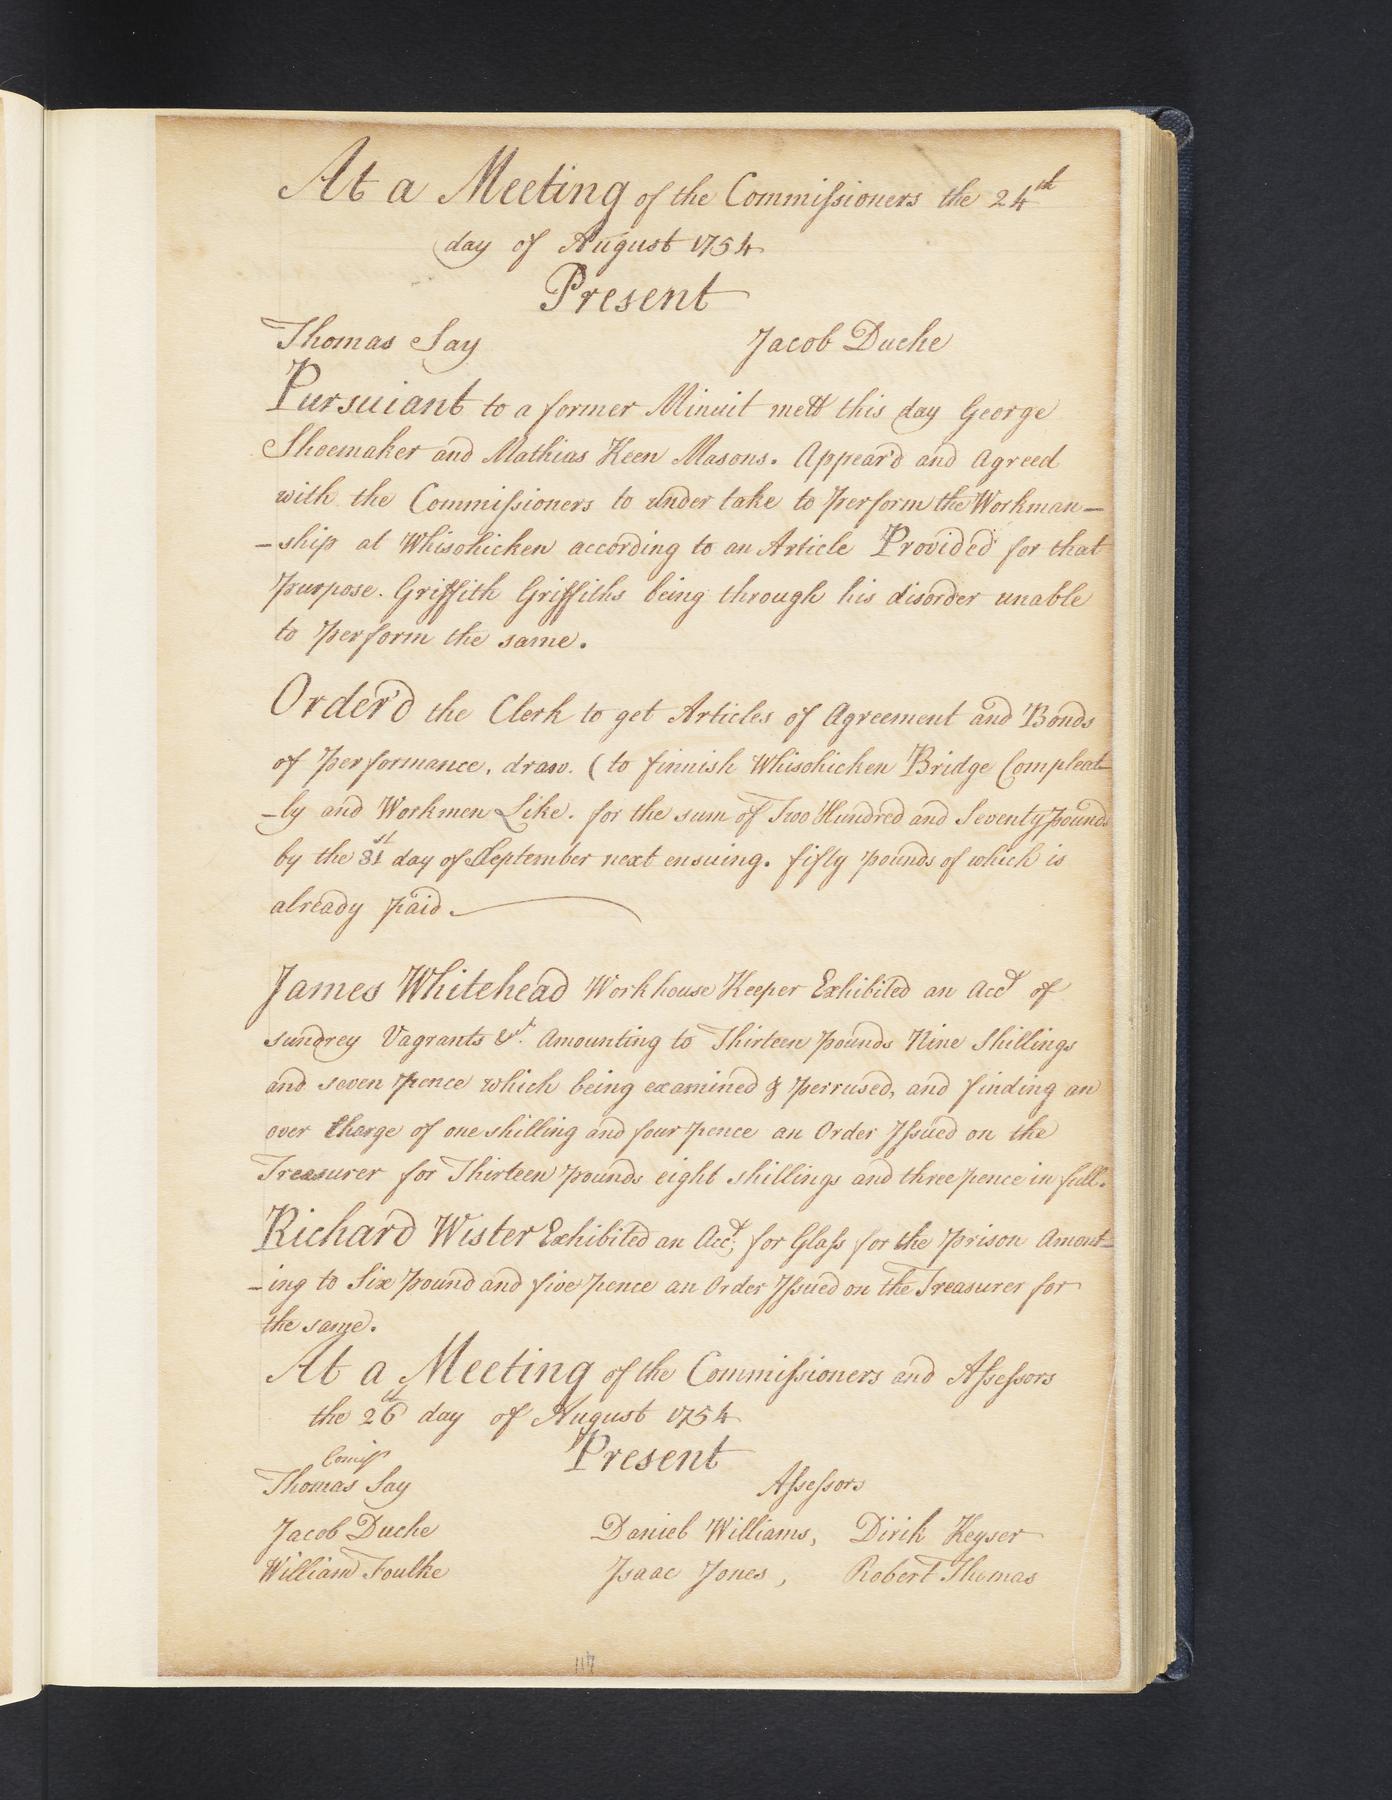 At a Meeting of the Commissioners the 24th
day of August 1754
Present
Thomas Say Jacob Duche
Pursuiant to a former Minuit mett this day George
Shoemaker and Mathias Keen Masons. Appear'd and Agreed
with the Commissioners to under take to Perform the Workman-
-ship at Whisohicken according to an Article Provided for that
Purpose. Griffith Griffiths being through his disorder unable
to Perform the same.
Order'd the Clerk to get Articles of Agreement and Bonds
of Performance, draw. (to finnish Whisohicken Bridge Compleat-
-ly and Workmen Like. for the sum of Two Hundred and Seventy Pounds
by the 31st day of September next ensuing. fifty Pounds of which is
already Paid.
James Whitehead Workhouse Keeper Exhibited an Acct of
sundrey Vagrants &c. Amounting to Thirteen Pounds Nine Shillings
and seven Pence which being examined & Perrused, and finding an
over Charge of one shilling and four Pence an Order Issued on the
Treasurer for Thirteen Pounds eight shillings and three Pence in full.
Richard Wister Exhibited an Acct, for Glass for the Prison Amont-
-ing to Six Pound and five Pence an Order Issued on the Treasurer for
the same.
At a Meeting of the Commissioners and Assessors
the 26th day of August 1754
Comiss Present
Thomas Say Assessors
Jacob Duche Daniel Williams, Dirik Keyser
William Foulke Isaac Jones, Robert Thomas